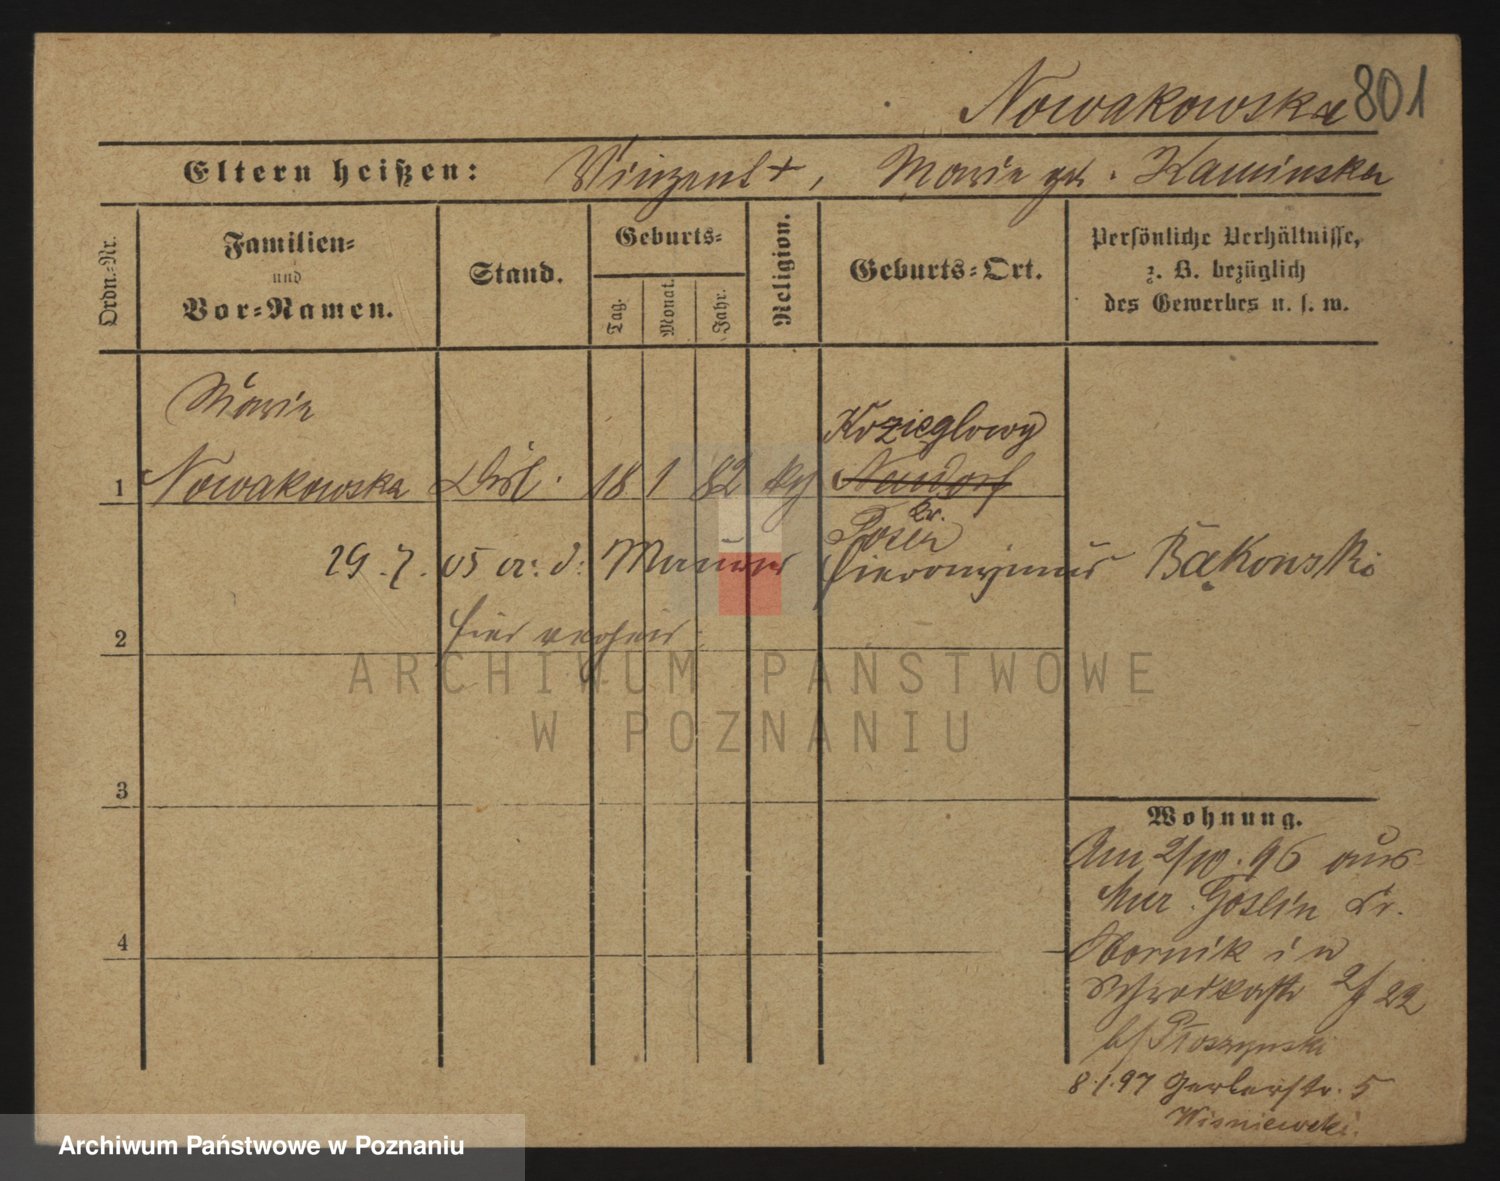 Nowakowska 801
Eltern heißen: Vinzent +, Marie geb. Kaminska
Ordn.-Nr.
Familien-
und
Vor-Namen.
Stand.
Geburts-
Tag.
Monat.
Jahr.
Religion.
Geburts-Ort.
Persönliche Verhältnisse,
z. B. bezüglich
des Gewerbes u. s. w.
Marie
Krzieglowy
1 Nowakowska 18 1 82 Neudorf
Kr.
Posen
29.7.05 m. d. Maurer Hieronymus Bąkowski
hier verheir.
2
3
4
Wohnung.
Am 2/10.96 aus
Mur. Goslin Kr.
Obornik in
22
b/ Ploszynski
8.1.97 Gerberstr. 5
Wisniewski.
ARCHIWUM PAŃSTWOWE
W POZNANIU
Archiwum Państwowe w Poznaniu